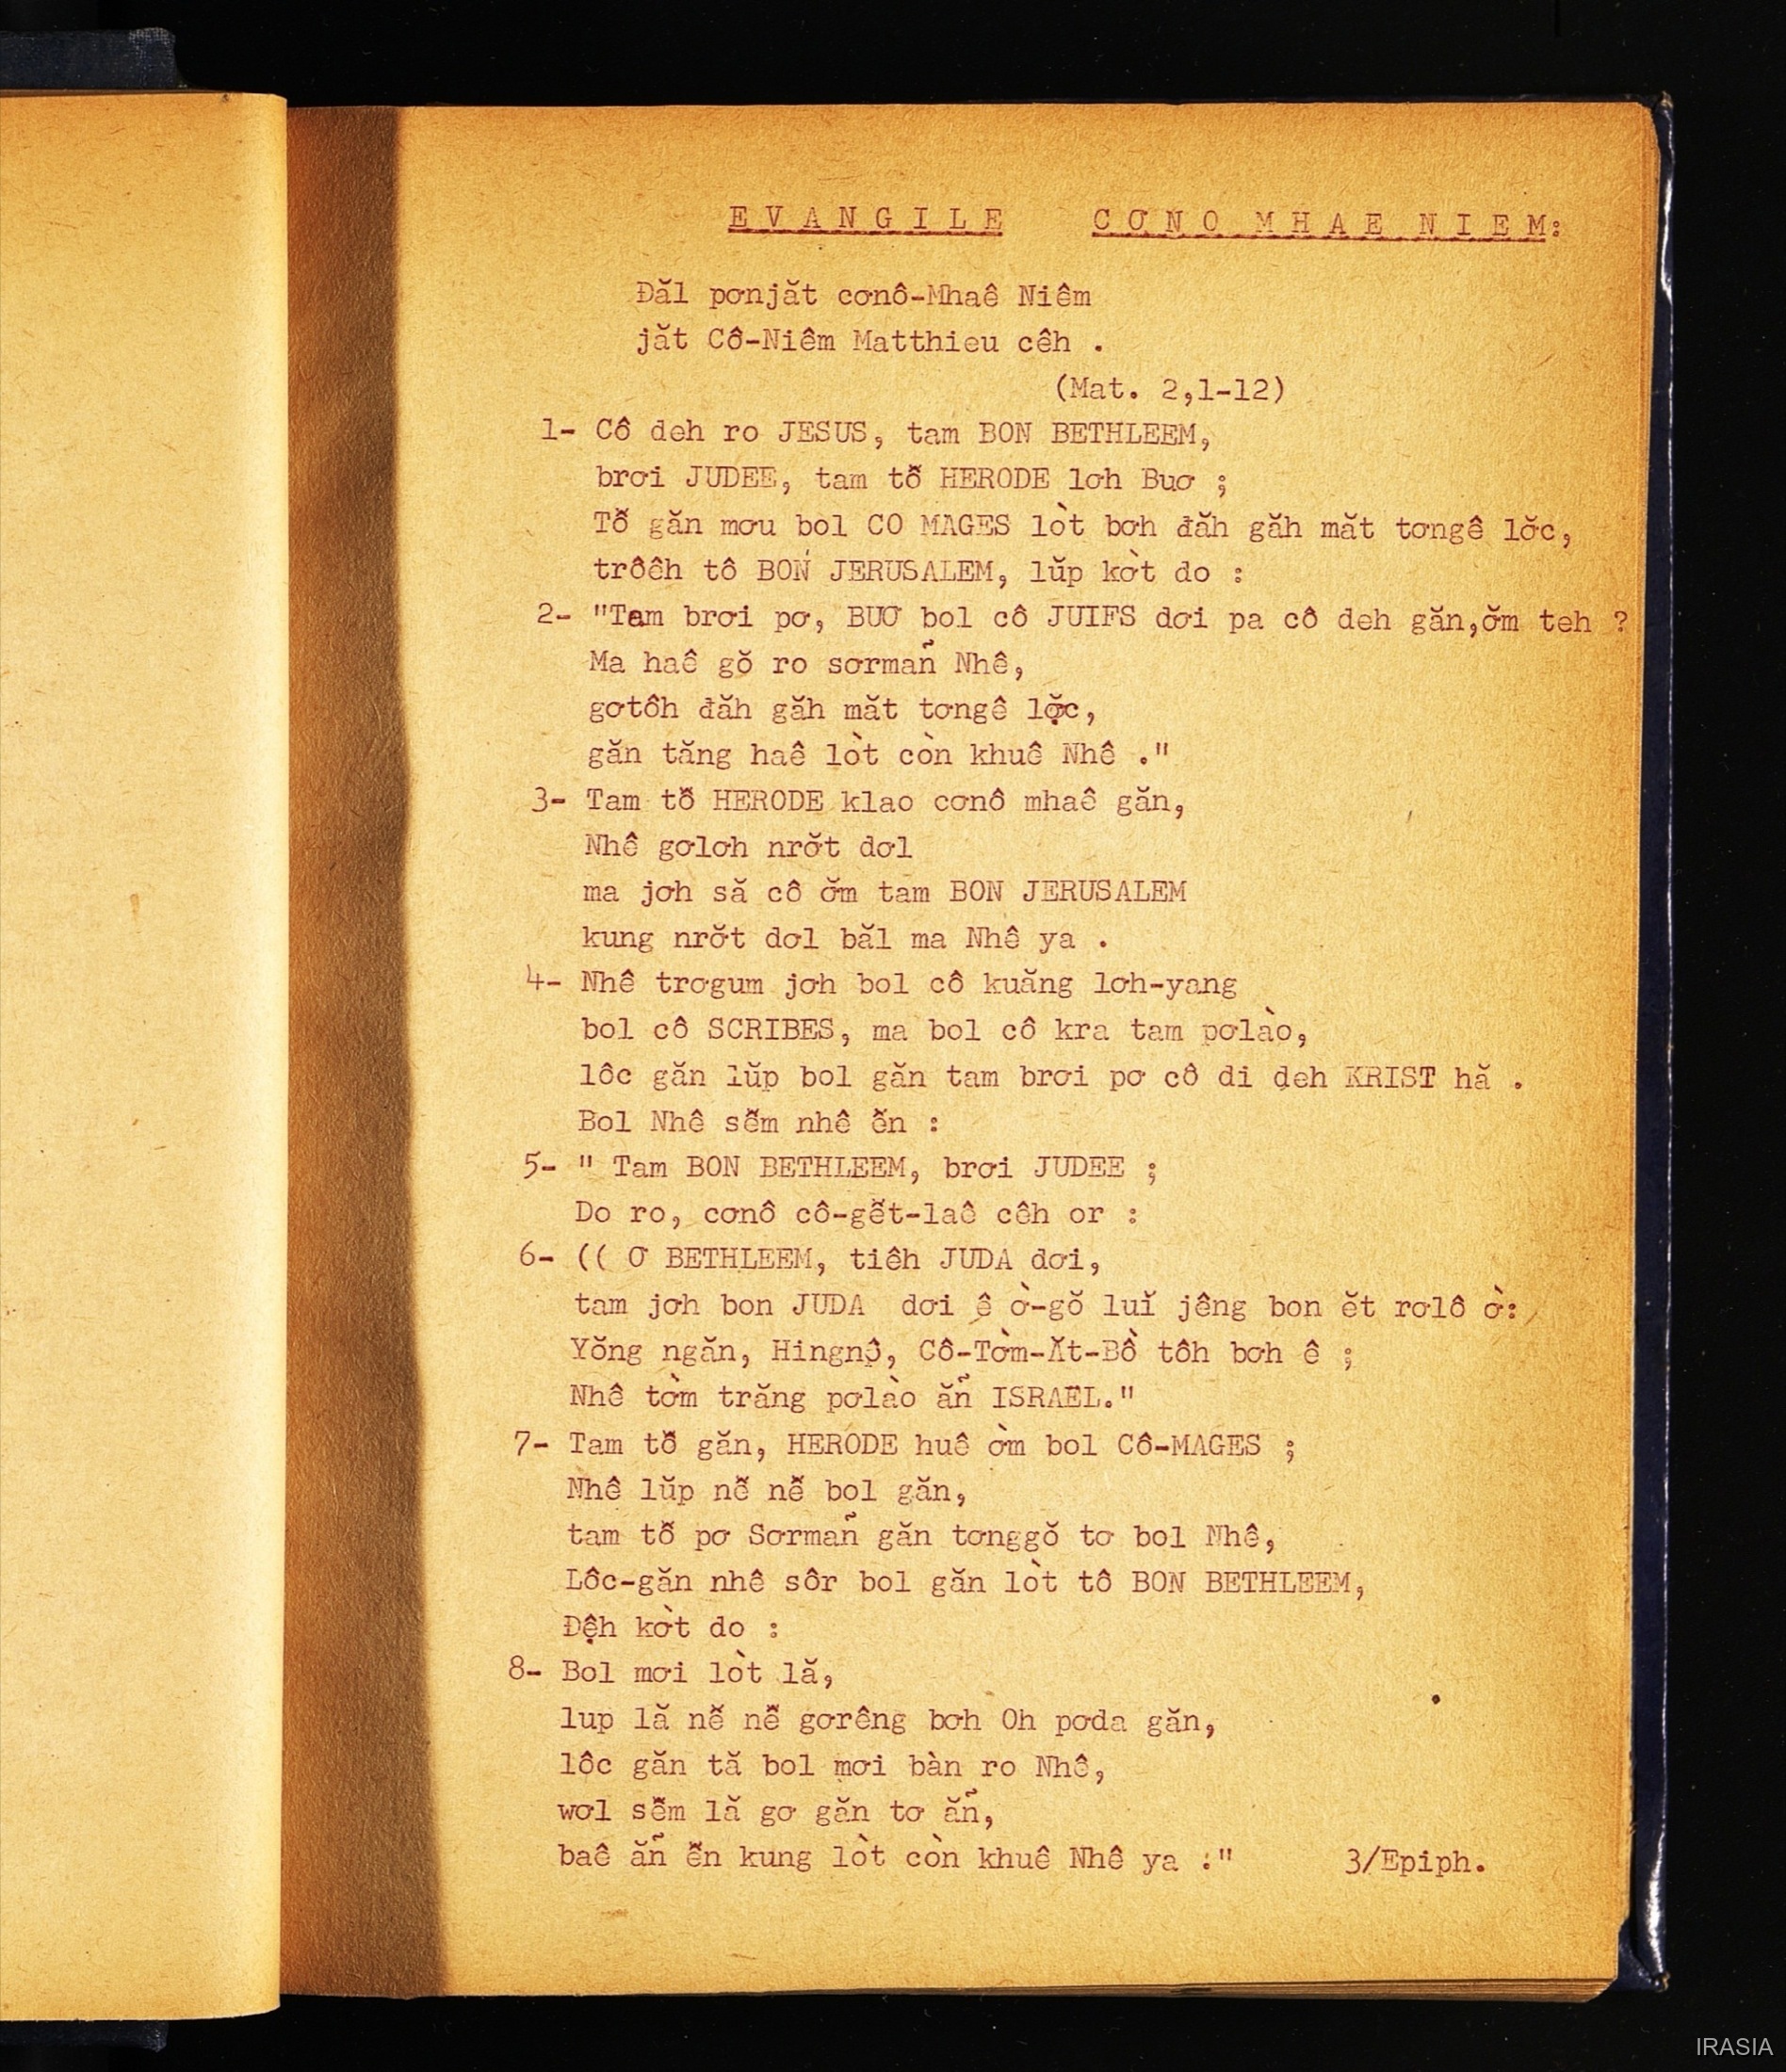 EVANGILE CƠNO MHAE NIEM:
Đăl pơnjăt cơnô-Mhaê Niêm
jăt Cô-Niêm Matthieu cêh .
(Mat. 2,1-12)
1- Cô deh ro JESUS, tam BON BETHLEEM,
brơi JUDEE, tam tô̆ HERODE lơh Buơ ;
Tô̆ găn mơu bol CO MAGES lòt bơh đăh găh măt tơngê lơ̆c,
trôêh tô BON JERUSALEM, lŭp kờt do :
2- "Tam brơi pơ, BUƠ bol cô JUIFS dơi pa cô deh găn,ơ̆m teh ?
Ma haê gŏ ro sơrmañ̆ Nhê,
gơtôh đăh găh măt tơngê lơ̆c,
găn tăng haê lòt còn khuê Nhê ."
3- Tam tô̆ HERODE klao cơnô mhaê găn,
Nhê gơlơh nrơ̆t dơl
ma jơh să cô ơ̆m tam BON JERUSALEM
kung nrơ̆t dơl băl ma Nhê ya .
4- Nhê trơgum jơh bol cô kuăng lơh-yang
bol cô SCRIBES, ma bol cô kra tam pơlào,
lôc găn lŭp bol găn tam brơi pơ cô di deh KRIST hă .
Bol Nhê sê̆m nhê ê̆n :
5- " Tam BON BETHLEEM, brơi JUDEE ;
Do ro, cơnô cô-gê̆t-laê cêh or :
6- (( Ơ BETHLEEM, tiêh JUDA dơi,
tam jơh bon JUDA dơi ê ờ-gŏ luĭ jêng bon ĕt rơlô ờ:
Yŏng ngăn, Hingnô, Cô-Tờm-Ăt-Bồ tôh bơh ê ;
Nhê tờm trăng pơlào ăñ ISRAEL."
7- Tam tô̆ găn, HERODE huê ờm bol Cô-MAGES ;
Nhê lŭp nê̆ nê̆ bol găn,
tam tô̆ pơ Sơrmañ̆ găn tơnggŏ tơ bol Nhê,
Lôc-găn nhê sôr bol găn lòt tô BON BETHLEEM,
Đệh kờt do :
8- Bol mơi lòt lă,
lup lă nê̆ nê̆ gơrêng bơh Oh pơda găn,
lôc găn tă bol mơi bàn ro Nhê,
wơl sê̆m lă gơ găn tơ ăñ,
baê ăñ ê̆n kung lòt còn khuê Nhê ya ." 3/Epiph.
IRASIA